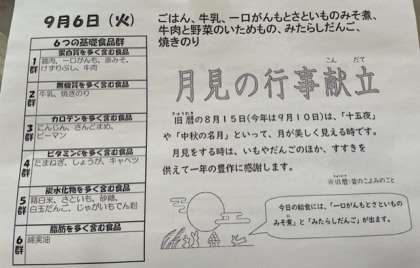 9月6日（火）
ごはん、牛乳、一口がんもとさといものみそ煮、
牛肉と野菜のいためもの、みたらしだんご、
焼きのり
6つの基礎食品群
1群
蛋白質を多く含む食品
鶏肉、一口がんも、赤みそ、
けずりぶし、牛肉
2群
無機質を多く含む食品
牛乳、焼きのり
3群
カロテンを多く含む食品
にんじん、さんどまめ、
ピーマン
4群
ビタミンCを多く含む食品
たまねぎ、しょうが、キャベツ
5群
炭水化物を多く含む食品
精白米、さといも、砂糖、
白玉だんご、じゃがいもでん粉
6群
脂肪を多く含む食品
綿実油
こん だて
月見の行事献立
きゅうれき
旧暦の8月15日(今年は9月10日)は、「十五夜」
や「中秋の名月」といって、月が美しく見える時です。
月見をする時は、いもやだんごのほか、すすきを
供えて一年の豊作に感謝します。
※旧暦:昔のこよみのこと
今日の給食には、「一口がんもとさといもの
みそ煮」と「みたらしだんご」が出ます。